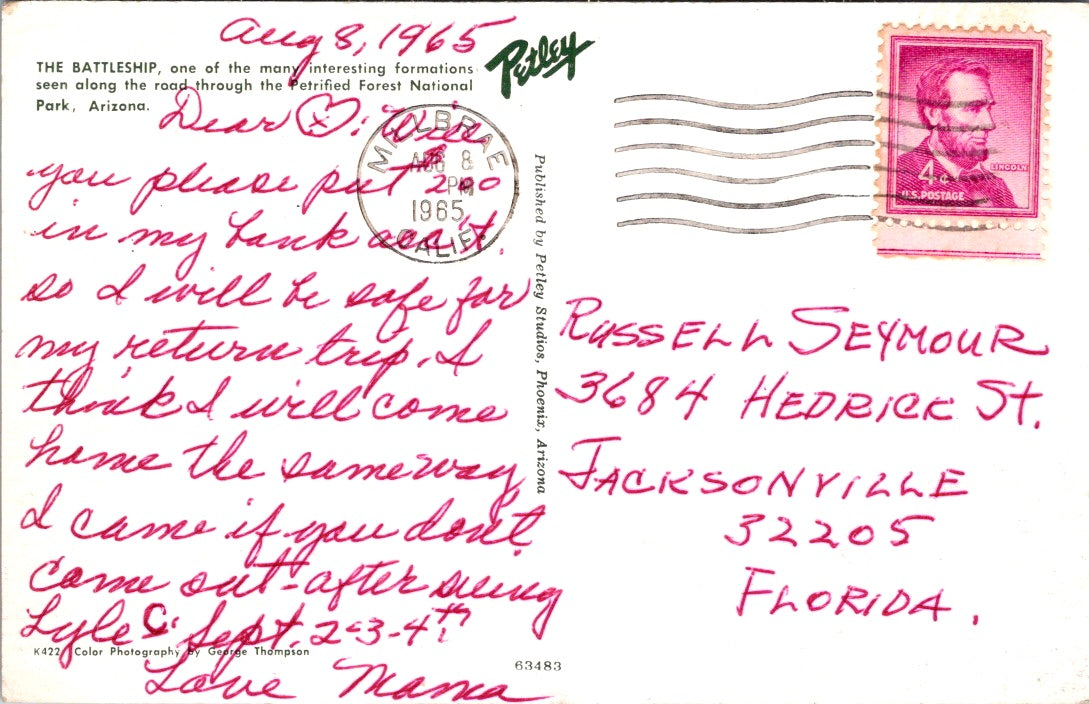 Aug 8, 1965
THE BATTLESHIP, one of the many interesting formations
seen along the road through the Petrified Forest National
Park, Arizona.
Petley
Dear ♡: Will
you please put 200
in my bank acc't.
so I will be safe for
my return trip. I
think I will come
home the same way
I came if you don't
come out-after seeing
Lyle C. Sept. 2-3-4th?
Love Mama
K422 Color Photography by George Thompson
63483
Published by Petley Studios, Phoenix, Arizona
MILLBRAE
AUG 8
PM
1965
CALIF.
LINCOLN
4¢
U.S. POSTAGE
RUSSELL SEYMOUR
3684 HEDRICK St.
JACKSONVILLE
32205
FLORIDA.